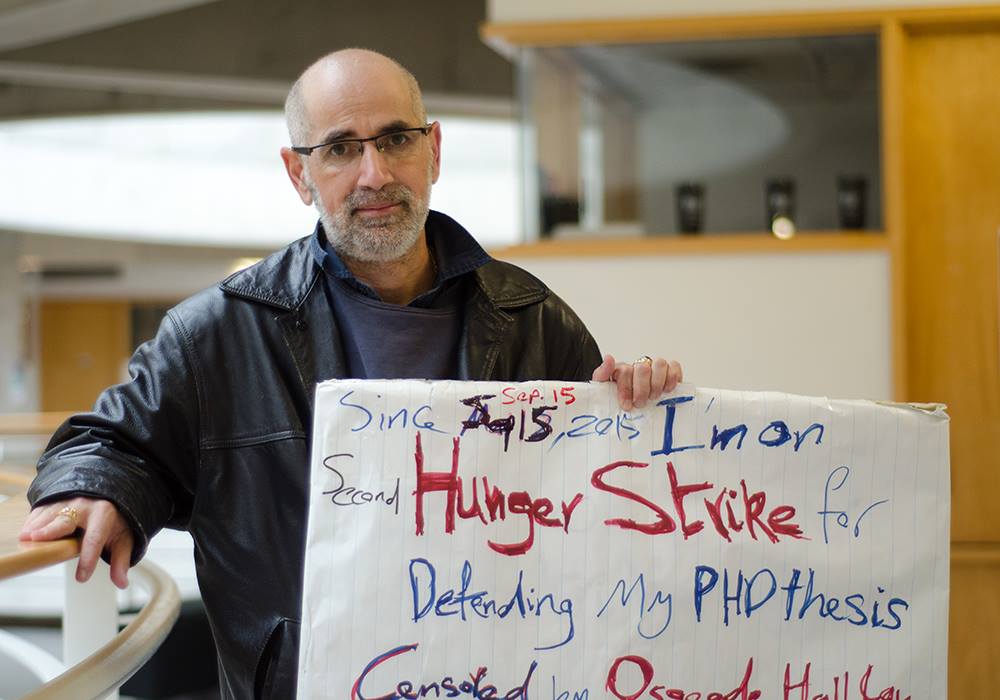 Sep. 15
Since 15, 2015 I'm on
Second Hunger Strike for
Defending My PHD thesis
Censored by Osgoode Hall Law